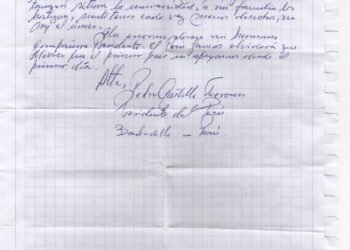 tampoco pisaron la universidad, a mi familia los
hostigan, sienten cada vez menos derechos, no
soy el único.
Un enorme abrazo mi hermano
Compañero Presidente. El Perú jamás olvidará que
México fue el primer país en apoyarnos desde el
primer día.
Atte,
Pedro Castillo Terrones
Presidente del Perú
Barbadillo - Perú.